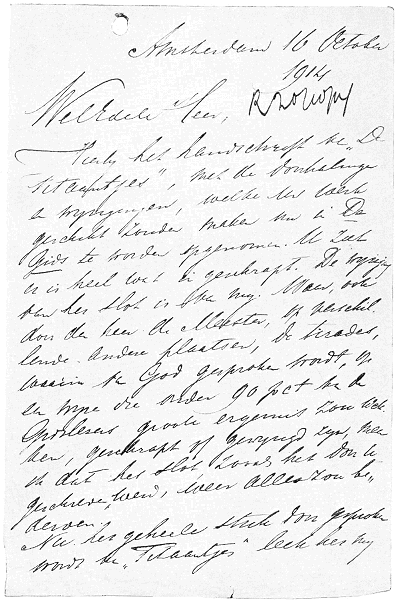 Amsterdam 16 October
1914
WelEdele Heer,
Hierbij het handschrift v. "De
Titaantjes", met de doorhalinge
en wyzigingen, welke het werk
geschikt zouden maken om in De
Gids te worden opgenomen. U ziet
er is heel wat in geschrapt. De wyziging
van het slot is van my. Maar, ook
door den heer de Meester, op verschil-
lende andere plaatsen, de tirades,
waarin v. God gesproken wordt, op
een wyze die onder 90 pct v. de
Gidslezers groote ergernis zou wek-
ken, geschrapt of gewyzigd zyn, meen
ik dat het slot zooals het door U
geschreven werd, weer alles zou be-
derven.
Nu het geheele stuk door gesproken
wordt v. "Titaantjes" leek het my